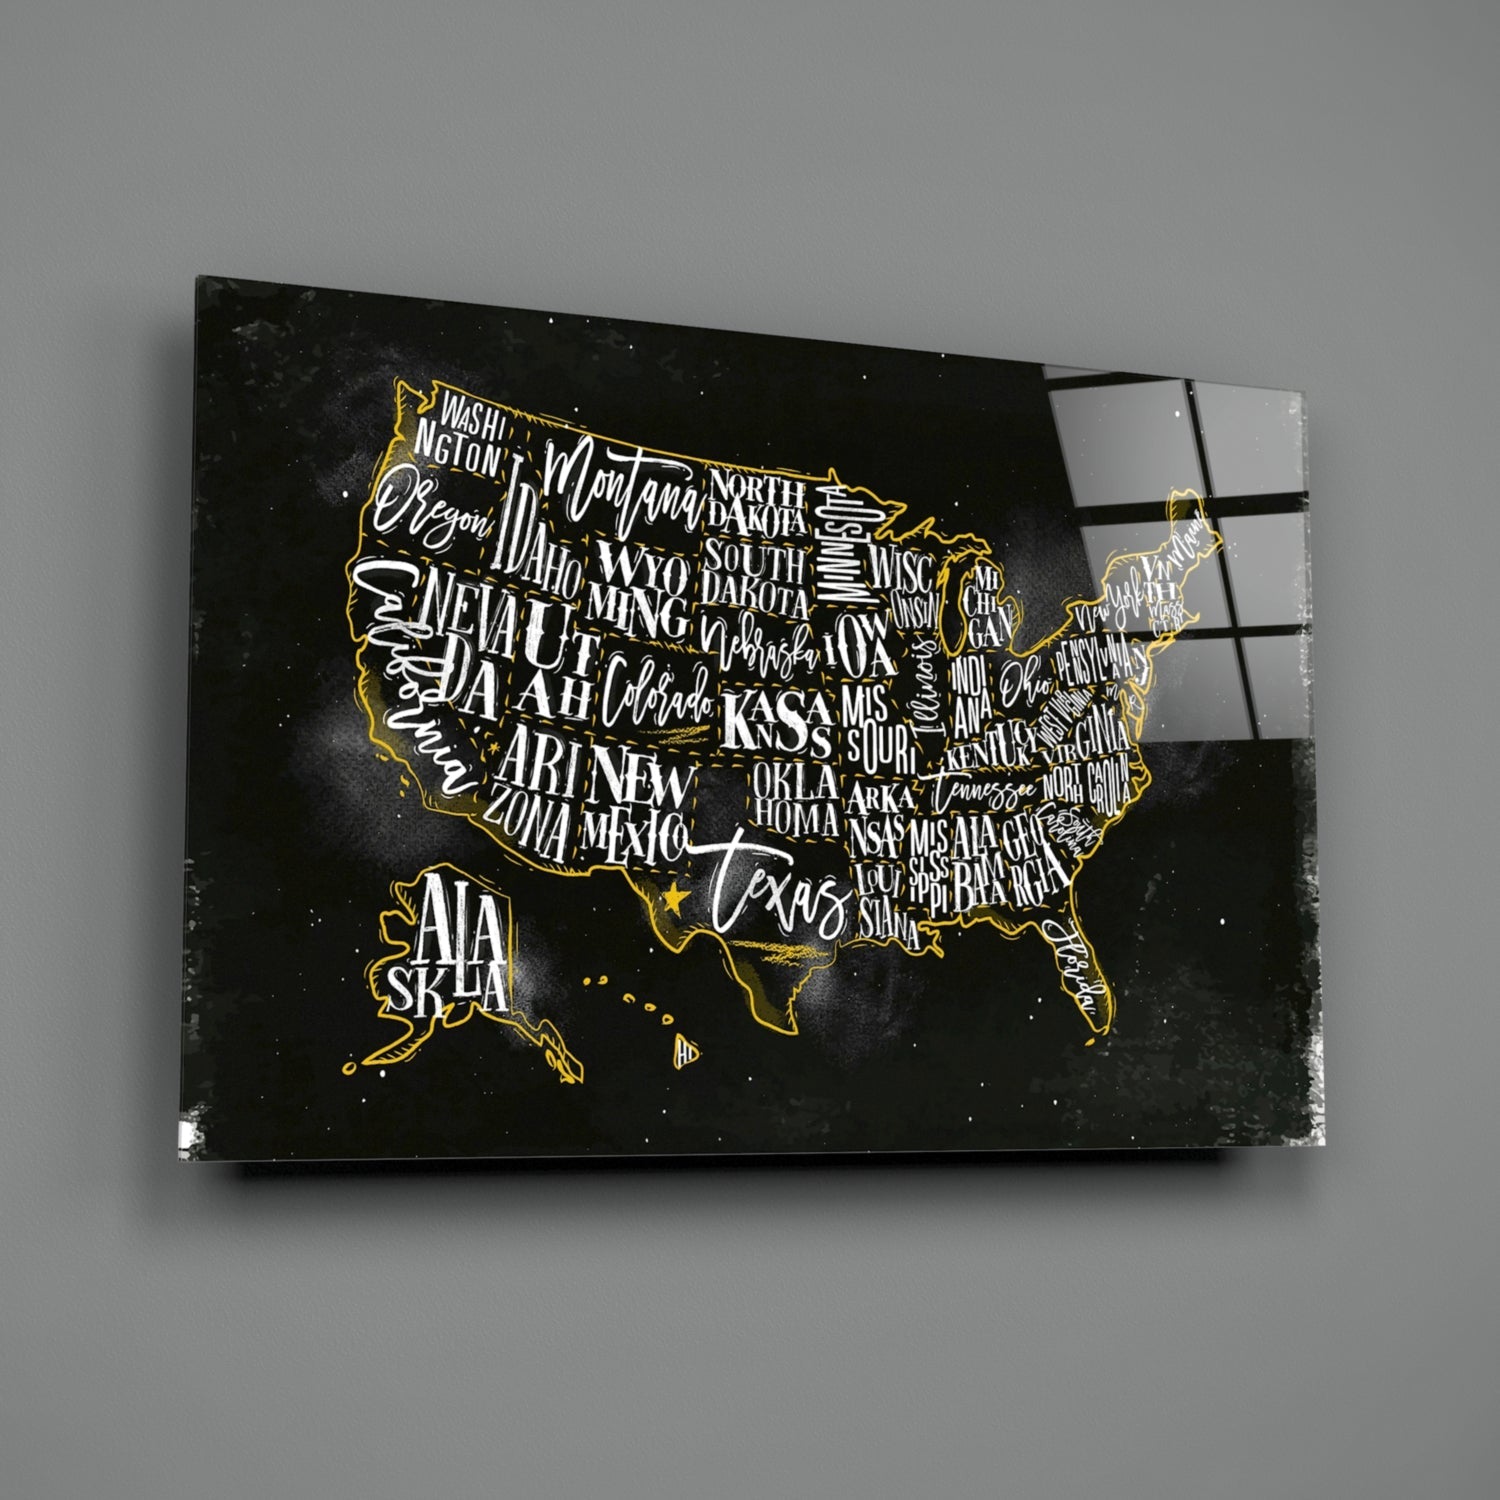 WASHI
NGTON
Oregon
California
IDAHO
Montana
NORTH
DAKOTA
MINNESOTA
WYO
MING
SOUTH
DAKOTA
WISC
ONSIN
MI
CHI
GAN
Maine
New York
NEVA
DA
UT
AH
Colorado
Nebraska
IOWA
Illinois
INDI
ANA
Ohio
PENSYLVANIA
KANSAS
MIS
SOURI
KENTUCKY
WEST VIRGINIA
VIRGINIA
ARI
ZONA
NEW
MEXICO
OKLA
HOMA
ARKA
NSAS
Tennessee
NORTH CAROLINA
South
Carolina
Texas
LOUI
SIANA
MIS
SISS
IPPI
ALA
BAMA
GEO
RGIA
Florida
ALA
SKA
HI